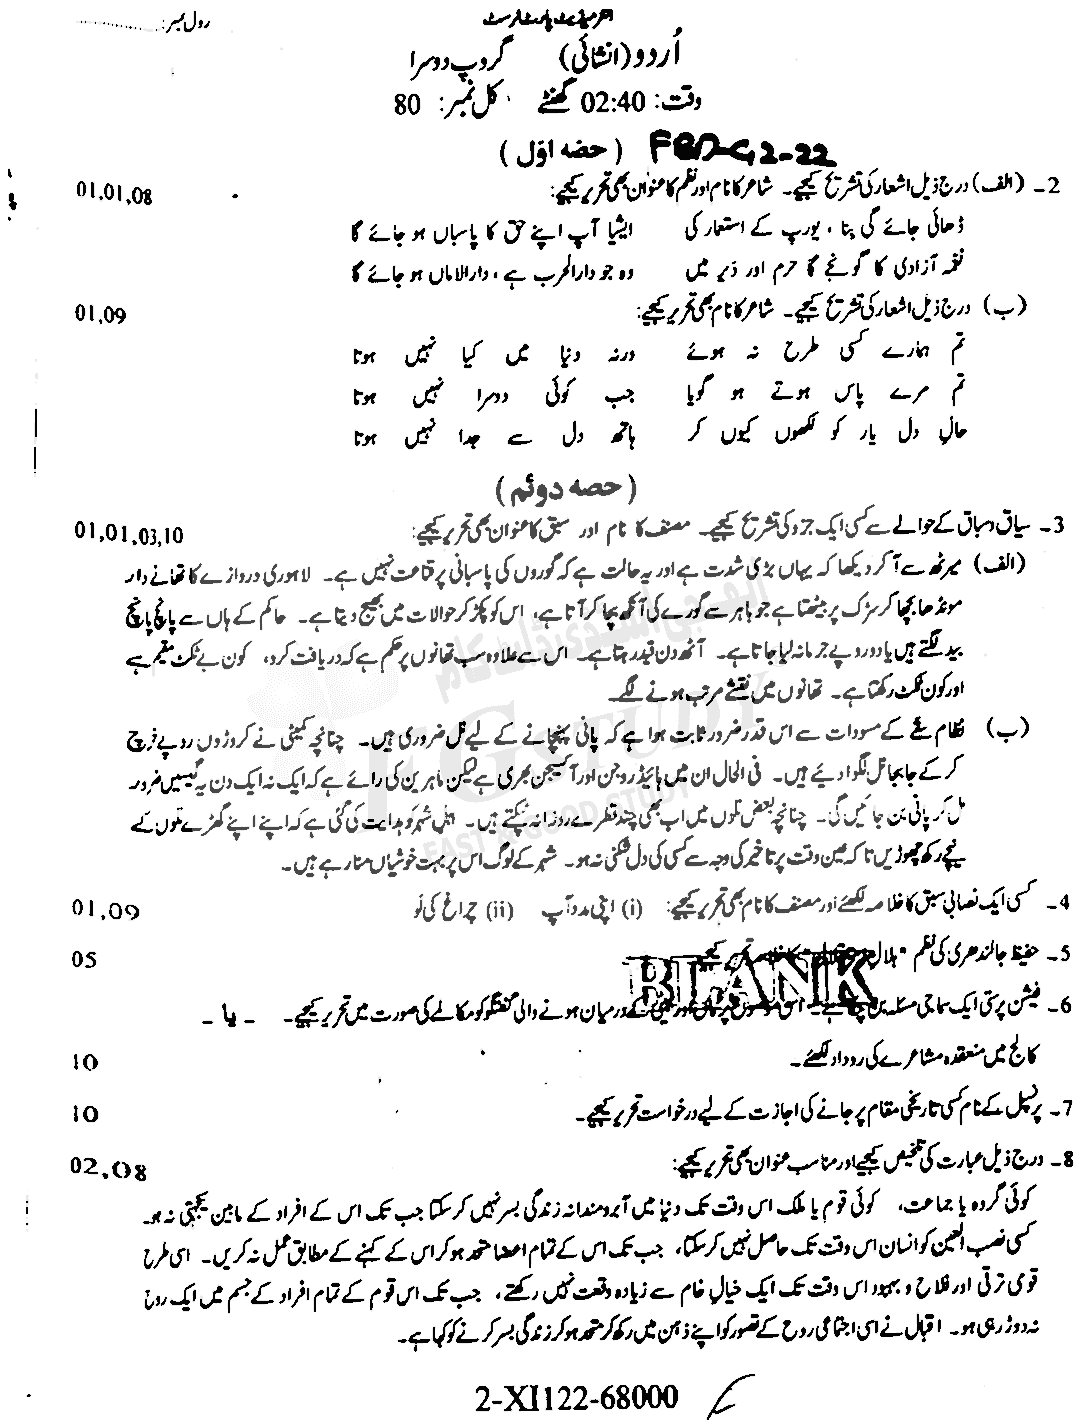 انٹرمیڈیٹ پارٹ فرسٹ
رول نمبر:
اُردو (انشائی) گروپ دوسرا
وقت: 02:40 گھنٹے کل نمبر: 80
(حصہ اوّل) FBD-G2-22
2- (الف) درج ذیل اشعار کی تشریح کیجیے۔ شاعر کا نام اور نظم کا عنوان بھی تحریر کیجیے: 01,01,08
ڈھائی جائے گی بنا، یورپ کے استعمار کی ایشیا آپ اپنے حق کا پاسباں ہو جائے گا
نغمہ آزادی کا گونجے گا حرم اور دَیر میں وہ جو دارالحرب ہے، دارالاماں ہو جائے گا
(ب) درج ذیل اشعار کی تشریح کیجیے۔ شاعر کا نام بھی تحریر کیجیے: 01,09
تم ہمارے کسی طرح نہ ہوئے ورنہ دنیا میں کیا نہیں ہوتا
تم مرے پاس ہوتے ہو گویا جب کوئی دوسرا نہیں ہوتا
حالِ دل یار کو لکھوں کیوں کر ہاتھ دل سے جدا نہیں ہوتا
(حصہ دوئم)
3- سیاق و سباق کے حوالے سے کسی ایک جزو کی تشریح کیجیے۔ مصنف کا نام اور سبق کا عنوان بھی تحریر کیجیے: 01,01,03,10
(الف) میرٹھ سے آ کر دیکھا کہ یہاں بڑی شدت ہے اور یہ حالت ہے کہ گوروں کی پاسبانی پر قناعت نہیں ہے۔ لاہوری دروازے کا تھانے دار
مونڈھا بچھا کر سڑک پر بیٹھتا ہے جو باہر سے گورے کی آنکھ بچا کر آتا ہے، اس کو پکڑ کر حوالات میں بھیج دیتا ہے۔ حاکم کے ہاں سے پانچ پانچ
بید لگتے ہیں یا دو روپے جرمانہ لیا جاتا ہے۔ آٹھ دن قید رہتا ہے۔ اس سے علاوہ سب تھانوں پر حکم ہے کہ دریافت کرو، کون بے ٹکٹ مقیم ہے
اور کون ٹکٹ رکھتا ہے۔ تھانوں میں نقشے مرتب ہونے لگے۔
(ب) نظام سقے کے مسودات سے اس قدر ضرور ثابت ہوا ہے کہ پانی پہنچانے کے لیے نل ضروری ہیں۔ چنانچہ کمیٹی نے کروڑوں روپے خرچ
کر کے جا بجا نل لگوا دیے ہیں۔ فی الحال ان میں ہائیڈروجن اور آکسیجن بھری ہے لیکن ماہرین کی رائے ہے کہ ایک نہ ایک دن یہ گیسیں ضرور
مل کر پانی بن جائیں گی۔ چنانچہ بعض نلوں میں اب بھی چند قطرے روزانہ ٹپکتے ہیں۔ اہلِ شہر کو ہدایت کی گئی ہے کہ اپنے اپنے گھڑے نلوں کے
نیچے رکھ چھوڑیں تا کہ عین وقت پر تاخیر کی وجہ سے کسی کی دل شکنی نہ ہو۔ شہر کے لوگ اس پر بہت خوشیاں منا رہے ہیں۔
4- کسی ایک نصابی سبق کا خلاصہ لکھئے اور مصنف کا نام بھی تحریر کیجیے: (i) اپنی مدد آپ (ii) چراغ کی لَو 01,09
5- حفیظ جالندھری کی نظم "ہلال کا خلاصہ تحریر کیجیے 05
BLANK
6- فیشن پرستی ایک سماجی مسئلہ بن چکا ہے۔ کے درمیان ہونے والی گفتگو کو مکالمے کی صورت میں تحریر کیجیے۔ - یا -
کالج میں منعقدہ مشاعرے کی روداد لکھئے۔ 10
7- پرنسپل کے نام کسی تاریخی مقام پر جانے کی اجازت کے لیے درخواست تحریر کیجیے۔ 10
8- درج ذیل عبارت کی تلخیص کیجیے اور مناسب عنوان بھی تحریر کیجیے: 02,08
کوئی گروہ یا جماعت، کوئی قوم یا ملک اس وقت تک دنیا میں آبرومندانہ زندگی بسر نہیں کر سکتا جب تک اس کے افراد کے مابین یکجہتی نہ ہو۔
کسی نصب العین کو انسان اس وقت تک حاصل نہیں کر سکتا، جب تک اس کے تمام اعضا متحد ہو کر اس کے کہنے کے مطابق عمل نہ کریں۔ اسی طرح
قومی ترقی اور فلاح و بہبود اس وقت تک ایک خیالِ خام سے زیادہ وقعت نہیں رکھتے، جب تک اس قوم کے تمام افراد کے جسم میں ایک روح
نہ دوڑ رہی ہو۔ اقبال نے اسی اجتماعی روح کے تصور کو اپنے ذہن میں رکھ کر متحد ہو کر زندگی بسر کرنے کو کہا ہے۔
2-XI122-68000